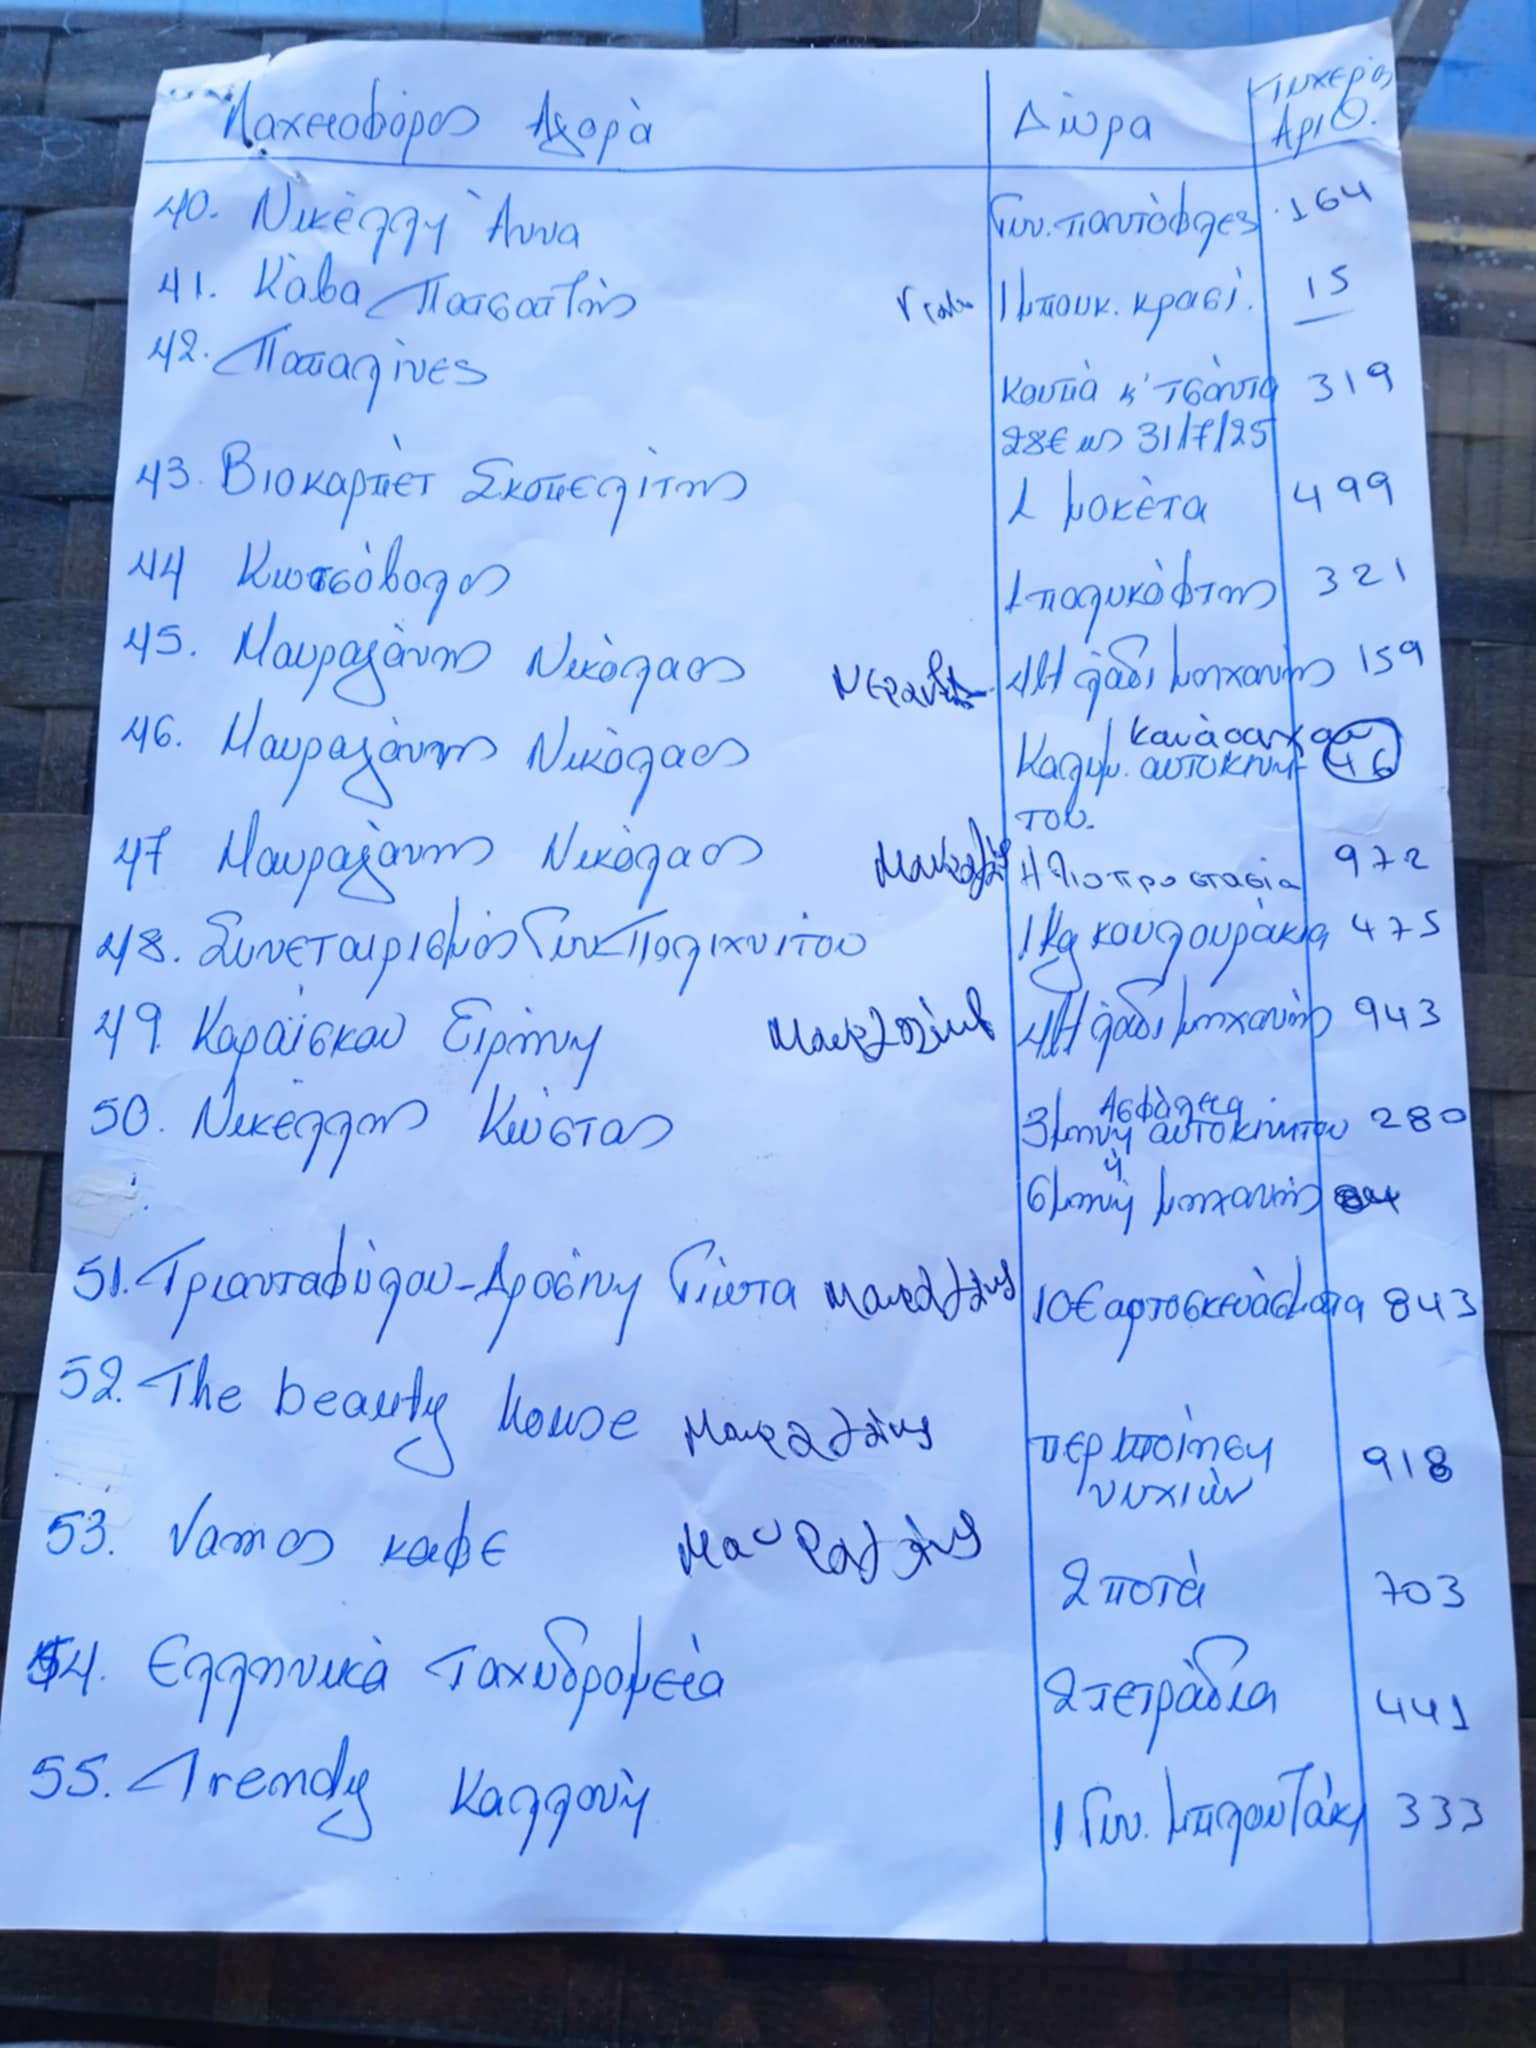 Λαχειοφόρος Αγορά Δώρα Τυχερός Αριθ.
40. Νικέλλη Άννα Γυν. παντόφλες 164
41. Κάβα Πατσατζής 1 μπουκ. κρασί. 15
42. Παπαλίνες κουπά κ' τσάντα 319
28€ ως 31/7/25
43. Βιοκαρπέτ Σκοπελίτης 1 μοκέτα 499
44 Κωτσόβολος 1 πολυκόφτης 321
45. Μαυραγάνης Νικόλαος 4lt λάδι μηχανής 159
46. Μαυραγάνης Νικόλαος Καλυμ. αυτοκινή- 46
του.
47 Μαυραγάνης Νικόλαος Ηλιοπροστασία 972
48. Συνεταιρισμός Γυν Πολιχνίτου 1 Kg κουλουράκια 475
49. Καραΐσκου Ειρήνη 4lt λάδι μηχανής 943
50. Νικέλλης Κώστας Ασφάλεια
3μηνη αυτοκινήτου 280
ή
6μηνη μηχανής
51. Τριανταφύλου-Δροσίνη Γιώτα 10€ αρτοσκευάσματα 843
52. The beauty House περιποίηση 918
νυχιών
53. Vamos καφε 2 ποτά 703
54. Ελληνικά Ταχυδρομεία 2 τετράδια 441
55. Trendy Καλλονή 1 Γυν. μπλουζάκι 333